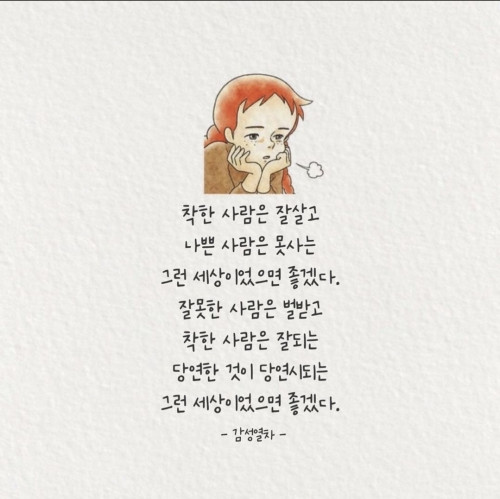 착한 사람은 잘살고
나쁜 사람은 못사는
그런 세상이었으면 좋겠다.
잘못한 사람은 벌받고
착한 사람은 잘되는
당연한 것이 당연시되는
그런 세상이었으면 좋겠다.
- 감성열차 -